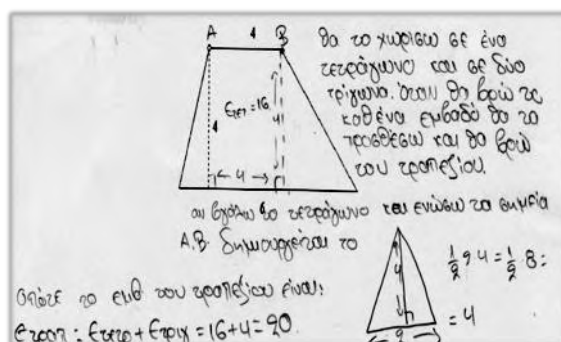 4
A B
θα το χωρίσω σε ένα
τετράγωνο και σε δύο
τρίγωνα. Όταν θα βρώ το
καθένα εμβαδό θα το
προσθέσω και θα βρώ
του τραπεζίου.
Ετετ=16
4
4
4
αν βγάλω το τετράγωνο και ενώσω τα σημεία
A.B. δημιουργείται το
4
2
1/2 2 4 = 1/2 8 =
= 4
οπότε το εμβ του τραπεζίου είναι:
Ετραπ = Ετετρ + Ετριγ = 16+4=20.